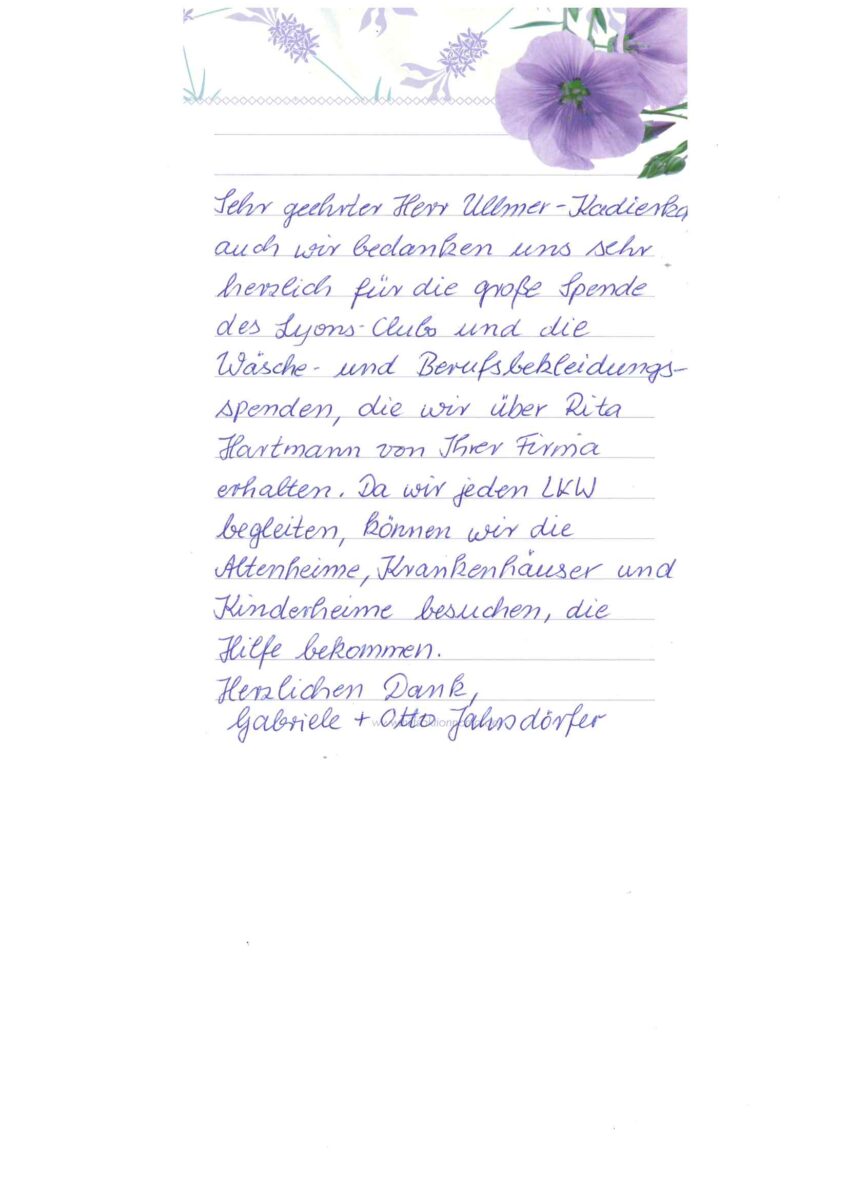 Sehr geehrter Herr Ullmer-Kadierka
auch wir bedanken uns sehr
herzlich für die große Spende
des Lyons-Clubs und die
Wäsche- und Berufsbekleidungs-
spenden, die wir über Rita
Hartmann von Ihrer Firma
erhalten. Da wir jeden LKW
begleiten, können wir die
Altenheime, Krankenhäuser und
Kinderheime besuchen, die
Hilfe bekommen.
Herzlichen Dank,
Gabriele + Otto Jahnsdörfer